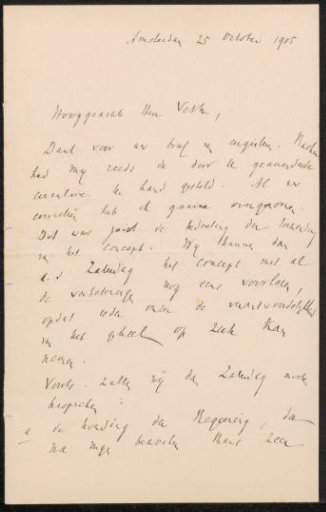 Amsterdam 25 October 1905
Hooggeachte Heer Veth,
Dank voor uw brief van eergisteren.
had mij reeds de door U
circulaire ter hand gesteld. Al uw
correcties heb ik gaarne overgenomen.
Dat was juist de bedoeling der toezending
van het concept. Wij kunnen dan
a.s. Zaterdag het concept met al
de verbeteringen nog eens voorlezen,
opdat ieder onzer de verantwoordelijkheid
van het geheel op zich kan
nemen.
Voorts zullen wij dan Zaterdag moeten
bespreken:
a de houding der Regeering, die
na mijn bezoek